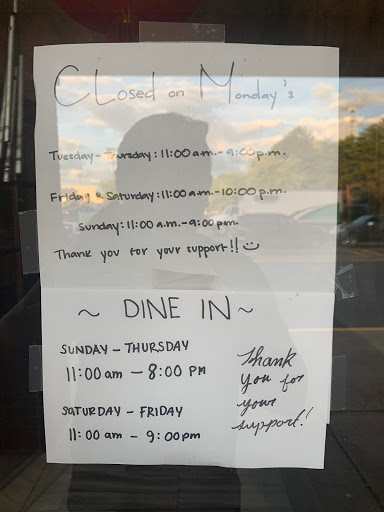 CLosed on Monday's
Tuesday - Thursday: 11:00 a.m. - 9:00 p.m.
Friday & Saturday: 11:00 a.m. - 10:00 p.m.
Sunday: 11:00 a.m. - 9:00 p.m.
Thank you for your support!! :)
~ DINE IN ~
SUNDAY - THURSDAY
11:00 am - 8:00 PM
SATURDAY - FRIDAY
11:00 am - 9:00 pm
Thank
you for
your
support!